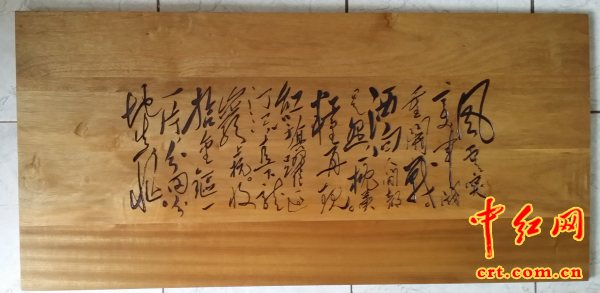 风云突
变军阀
重開戰。
洒向人间都
是怨一枕黄
粱再现。
红旗躍过
汀江直下龙
岩上杭。收
拾金瓯一
片分田分
地真忙
中红网
crt.com.cn